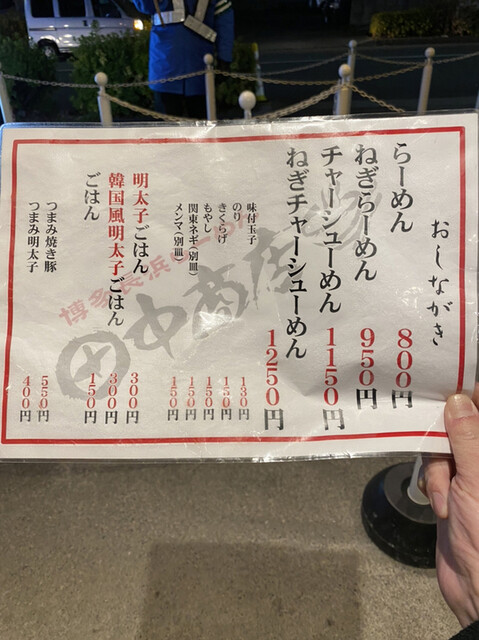 おしながき
らーめん 800円
ねぎらーめん 950円
チャーシューめん 1150円
ねぎチャーシューめん 1250円
味付玉子
のり
きくらげ
もやし
関東ネギ(別皿)
メンマ(別皿)
130円
150円
150円
150円
150円
明太子ごはん 300円
韓国風明太子ごはん 300円
ごはん 150円
つまみ焼き豚 550円
つまみ明太子 400円
博多長浜らーめん
田中商店